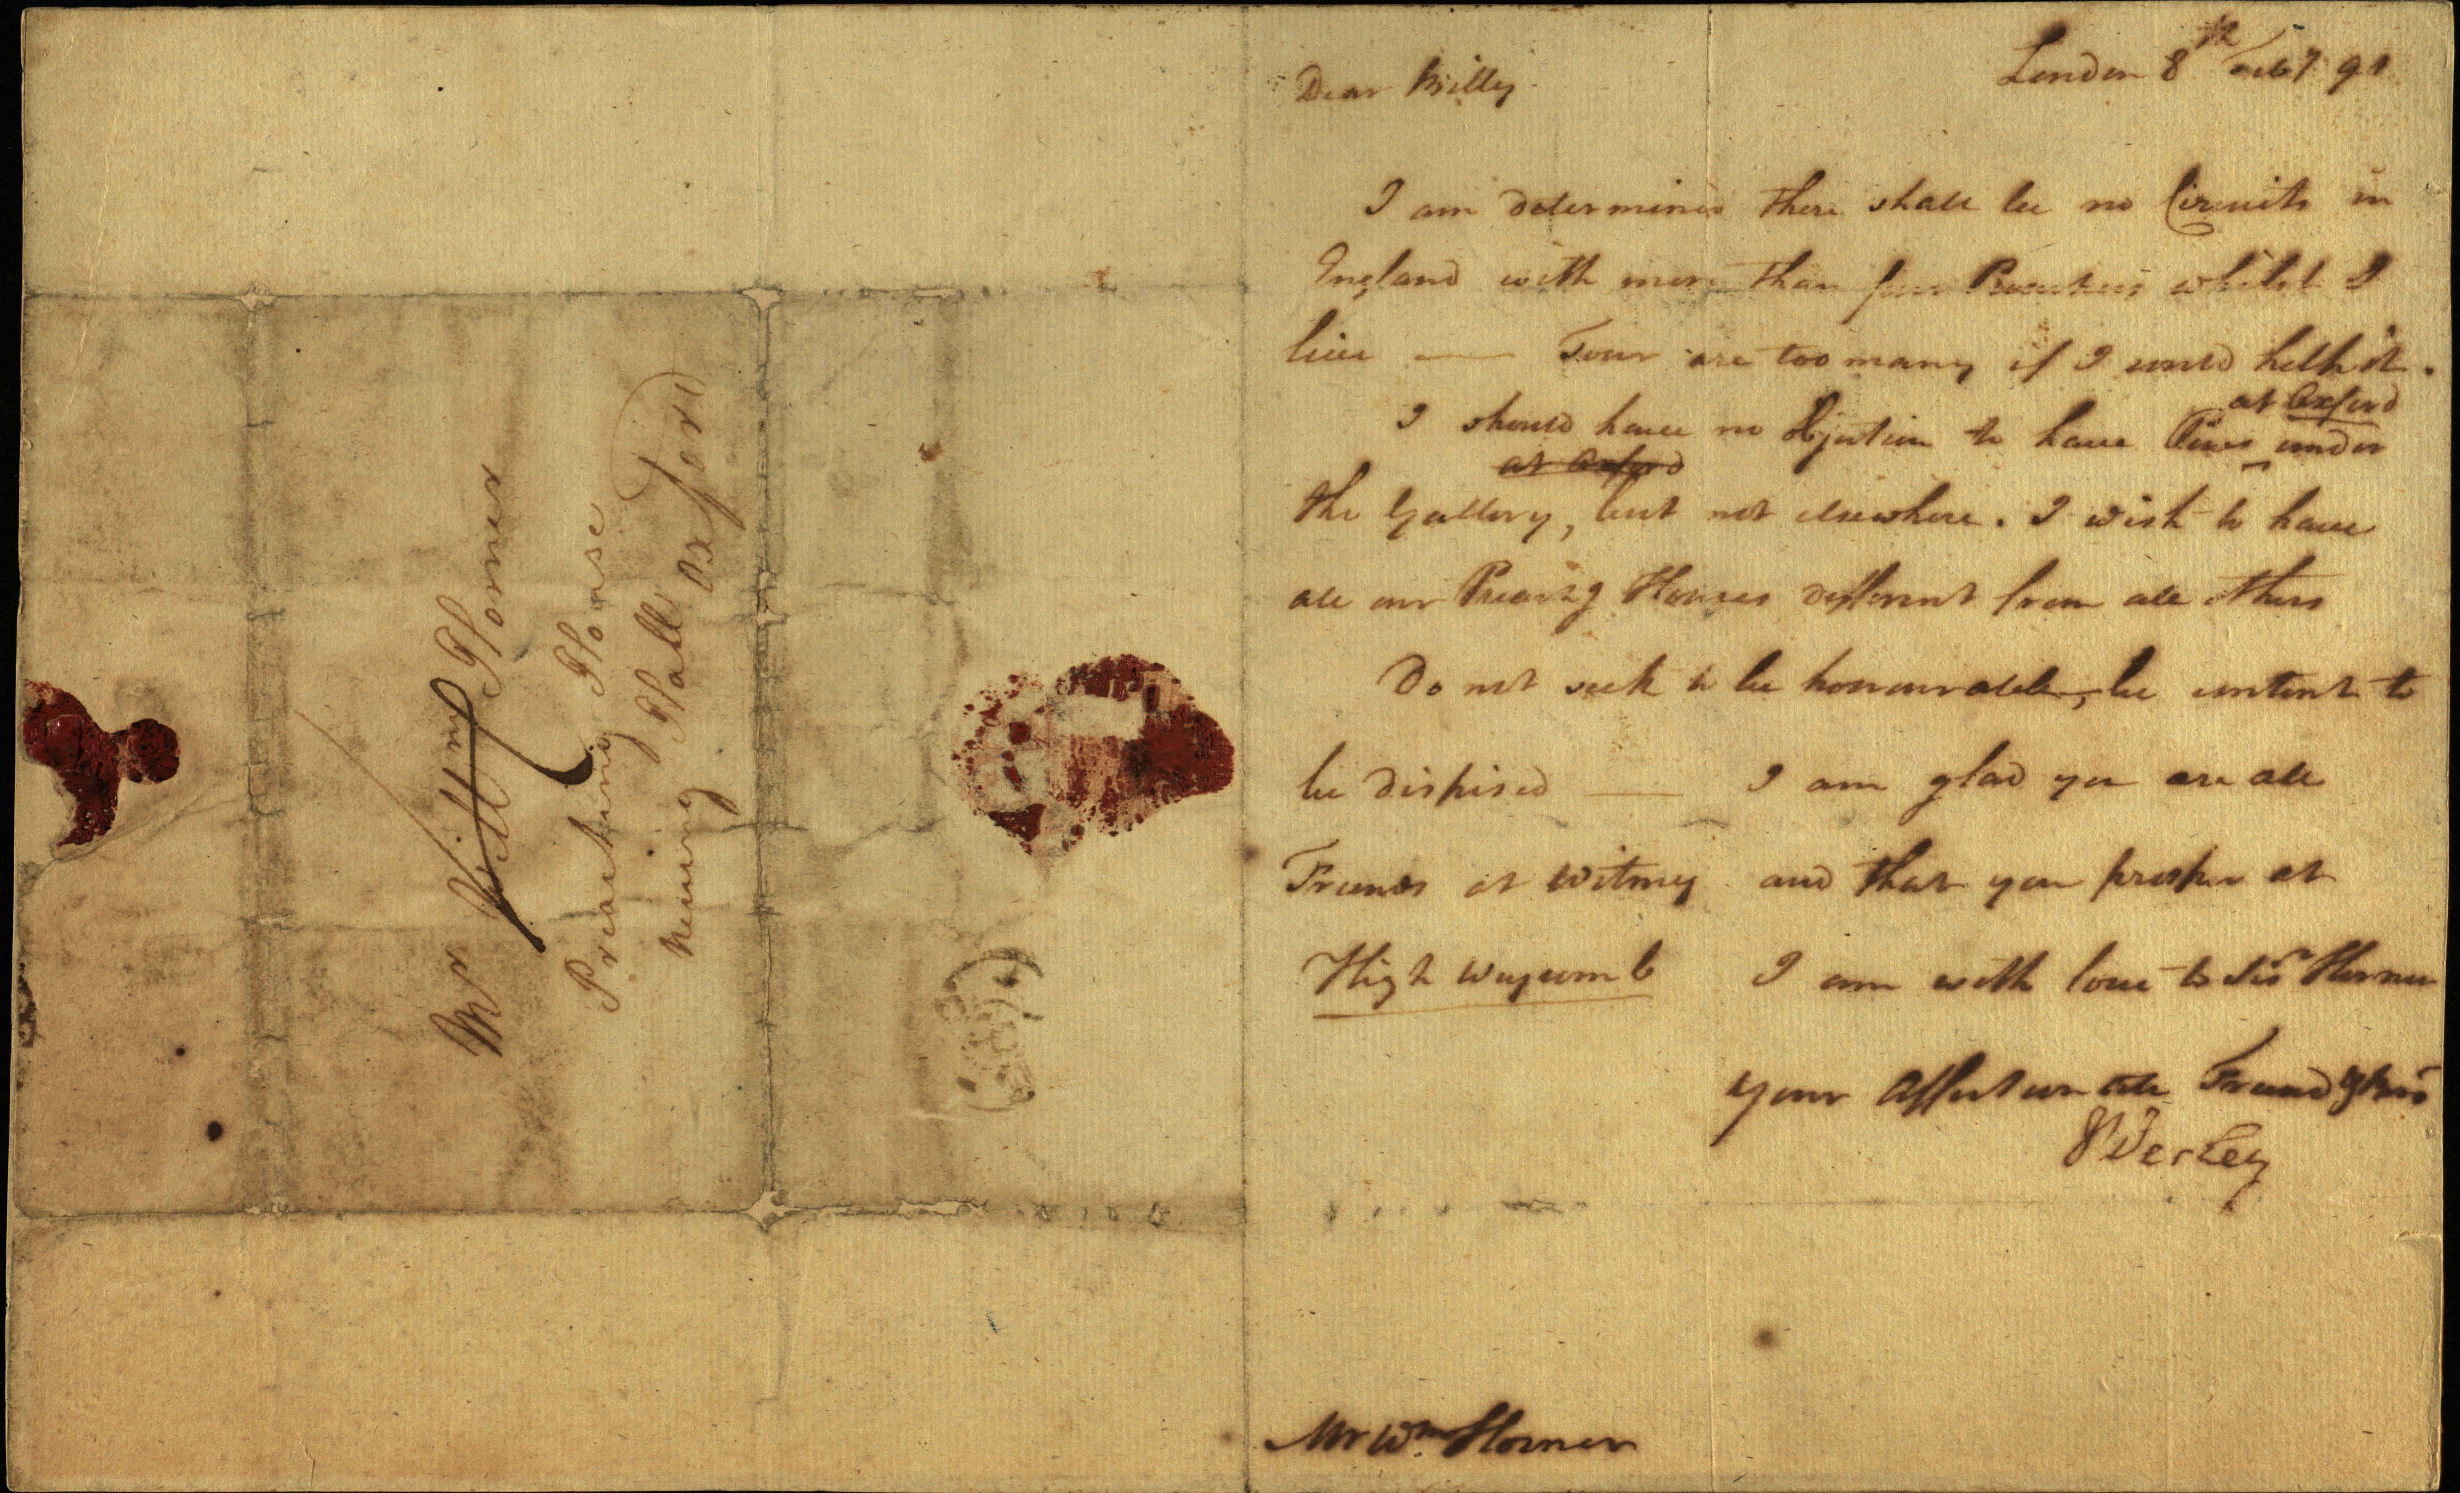 Mr Willm Horner
Preaching House
New inn Hall
Oxford
London 8th Feb 91
Dear Billy
I am determined there shall be no Circuits in
England with more than four Preachers whilst I
live — Four are too many if I could help it.
at Oxford
I should have no Objection to have Pews under
at Oxford
the Gallery, but not elsewhere. I wish to have
all our Preachg Houses different from all others
Do not seek to be honourable, be content to
be dispised — I am glad you are all
Friends at Witney and that you prosper at
High Wycomb I am with love to Sisr Horner
Your Affectionate Friend & Bro
J Wesley
Mr Wm Horner